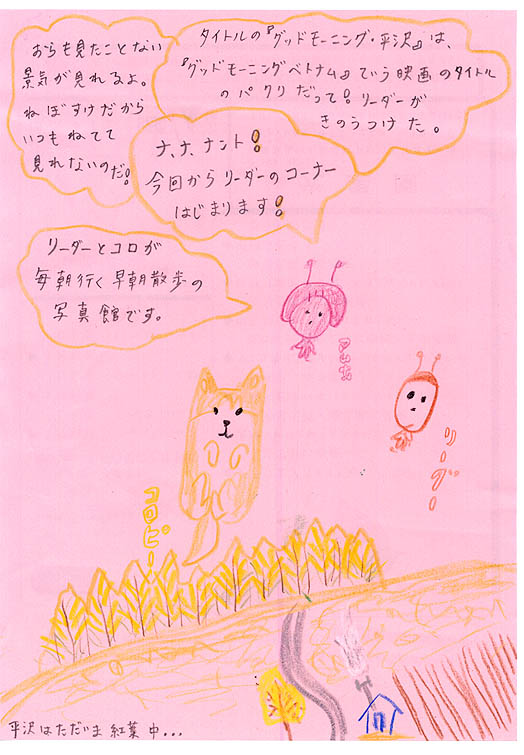 おらも見たことない
景気が見れるよ。
ねぼすけだから
いつもねてて
見れないのだ!
タイトルの『グッドモーニング・平沢』は、
『グッドモーニングベトナム』でいう映画のタイトル
のパクリだって!リーダーが
きのうつけた。
ナ、ナ、ナント!
今回からリーダーのコーナー
はじまります!
リーダーとコロが
毎朝行く早朝散歩の
写真館です。
リーダー
コロピー
平沢はただいま紅葉中...